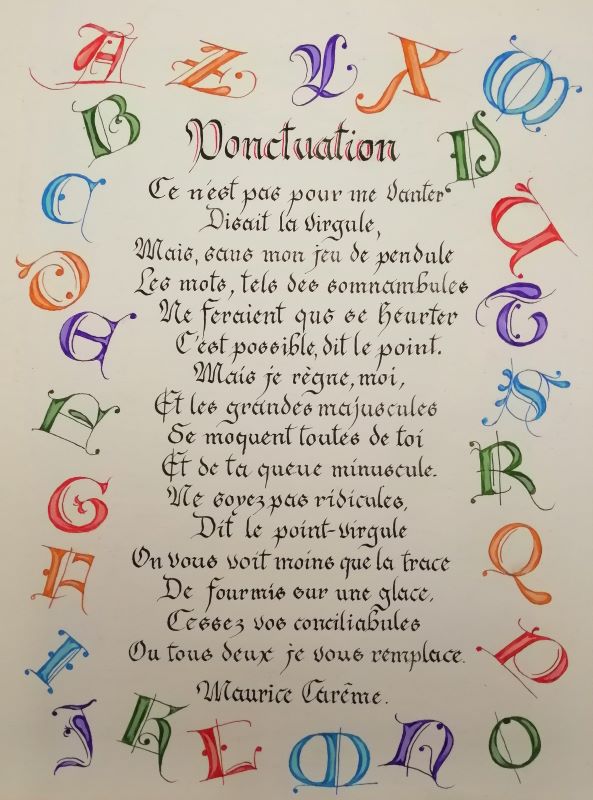 A Z Y X W
B
V
Ponctuation
Ce n'est pas pour me vanter
Disait la virgule,
Mais, sans mon jeu de pendule
Les mots, tels des somnambules
Ne feraient qus se heurter
C'est possible, dit le point.
Mais je règne, moi,
Et les grandes majuscules
Se moquent toutes de toi
Et de ta queue minuscule.
Ne soyez pas ridicules,
Dit le point-virgule
On vous voit moins que la trace
De fourmis sur une glace.
Cessez vos conciliabules
Ou tous deux je vous remplace.
Maurice Carême.
C
D
E
F
G
H
I
U
T
S
R
Q
P
J K L M N O